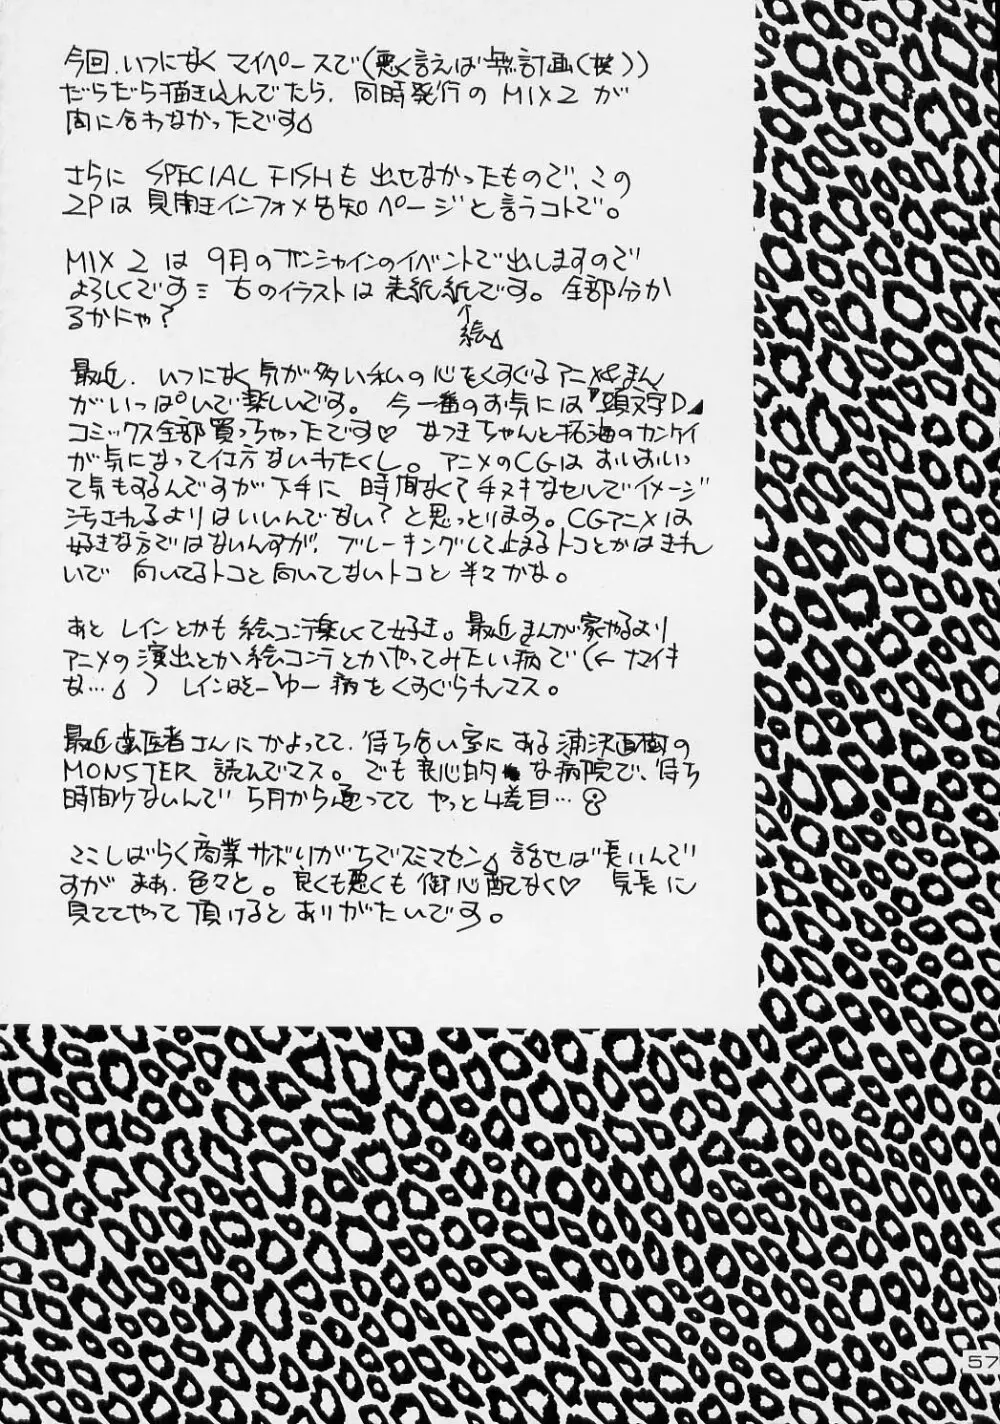 今回、いつになく マイペースで(悪く言えば無計画(笑))
だらだら描き込んでたら、同時発行の MIX2 が
間に合わなかったです
さらに SPECIAL FISHも 出せなかったもので、この
2Pは 貝南王インフォメ告知ページと言うコトで。
MIX 2 は 9月のサンシャインのイベントで出しますので
よろしくです 右のイラストは 表紙紙です。全部分か
るかにゃ?
↑
絵
最近、いつになく 気が多い私の心をくすぐるアニメ&まん
がいっぱいで楽しいです。今一番のお気には『頭文字D』
コミックス全部買っちゃったです♡ なつきちゃんと拓海のカンケイ
が気になって仕方ないわたくし。アニメのCGは おいおいっ
て気もするんですが下手に 時間なくて手ヌキなセルでイメージ
汚されるよりはいいんでない?と思っとります。CGアニメは
好きな方ではないんすが、ブレーキングして止まるトコとかはきれ
いで 向いてるトコと向いてないトコと 半々かな。
あと レインとかも 絵コンテ楽しくて好き。最近まんが家やるより
アニメの演出とか絵コンテとかやってみたい病で(←ナマイキ
な…) レインはそーゆー病をくすぐられマス。
最近歯医者さんにかよってて、待ち合い室にある浦沢直樹の
MONSTER 読んでマス。でも良心的な病院で、待ち
時間少ないんで 5月から通ってて やっと4巻目…
ここしばらく商業サボりがちでスミマセン 話せば長いんで
すが まあ、色々と。良くも悪くも御心配なく♡ 気長に
見ててやって頂けるとありがたいです。
57